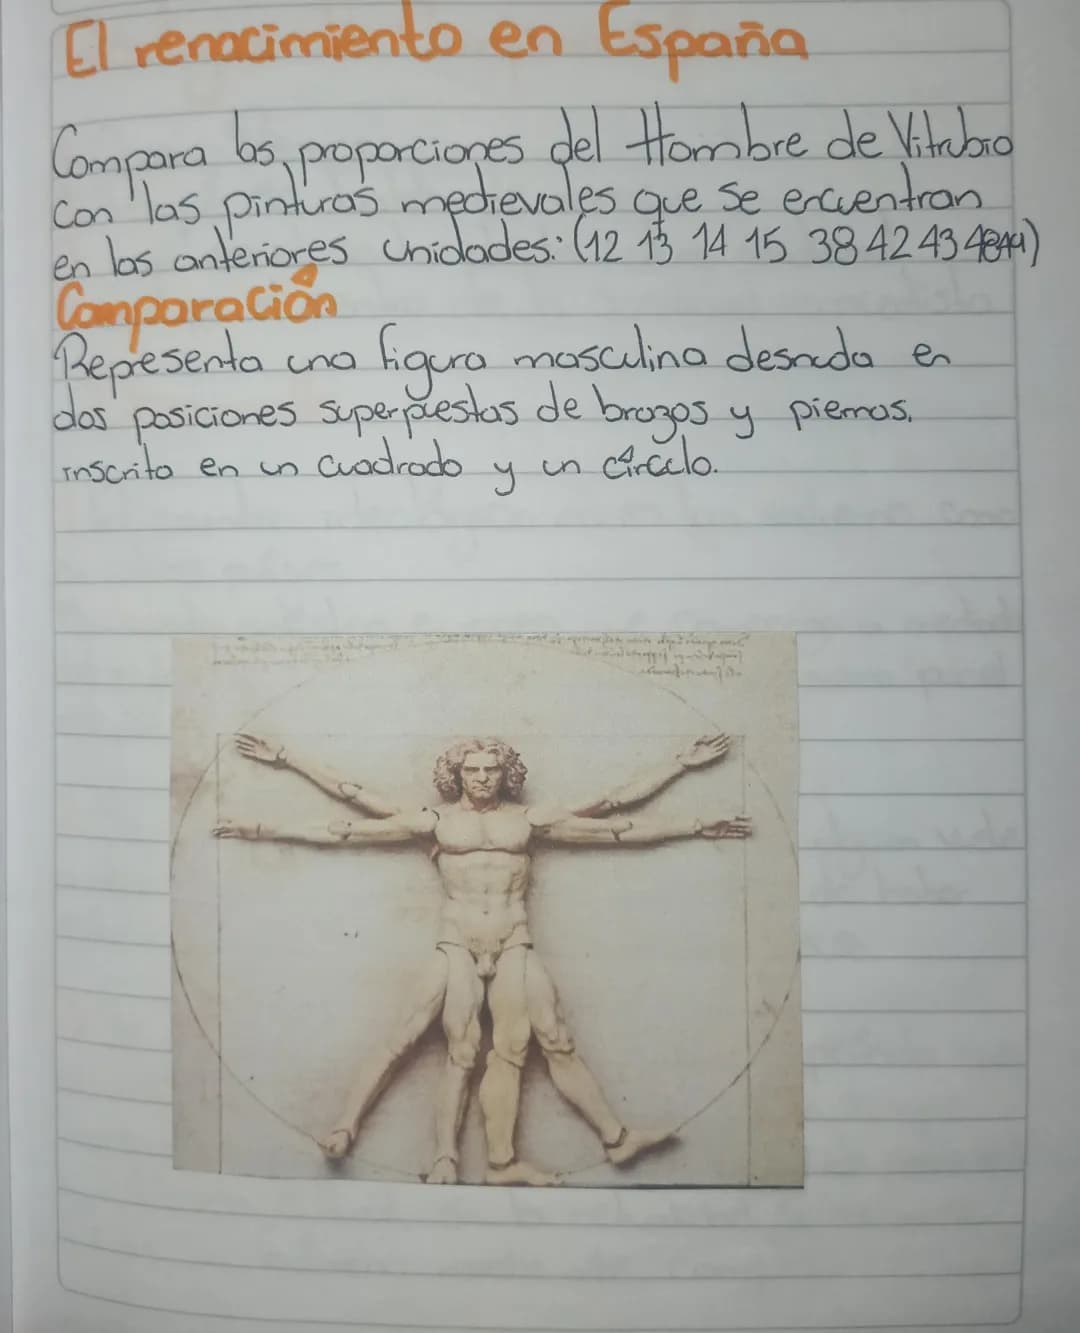 El renacimiento en España
Compara las proporciones del Hombre de Vitrubio
con las pinturas medievales que se encuentran
en las anteriores unidades: (12 13 14 15 38 42 43
Comparación
Representa una figura masculina desnuda en
dos posiciones superpuestas de brazos y piernas,
inscrito en un cuadrado y un círculo.